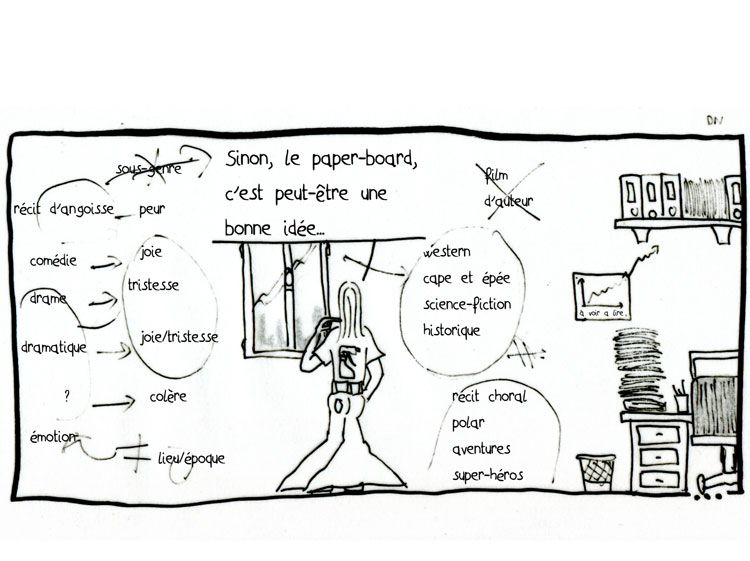 DN
sous-genre
Sinon, le paper-board,
c'est peut-être une
bonne idée...
film
d'auteur
récit d'angoisse
peur
comédie
joie
drame
tristesse
dramatique
joie/tristesse
?
colère
émotion
≠
lieu/époque
western
cape et épée
science-fiction
historique
récit choral
polar
aventures
super-héros
à voir a lire